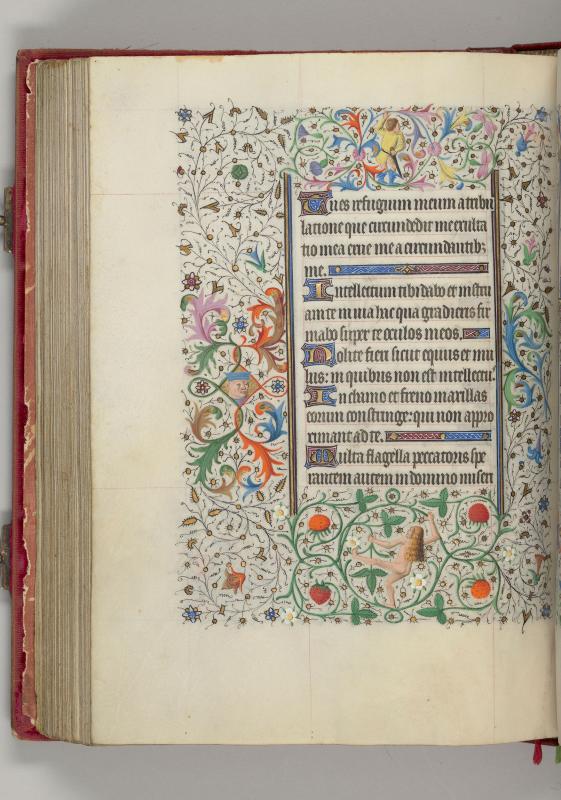 Tu es refugium meum a tribu
latione que circundedit me exulta
tio mea erue me a circundantibꝫ
me.
Intellectum tibi dabo et instru
am te in uia hac qua gradieris fir
mabo super te oculos meos.
Nolite fieri sicut equus et mu
lus: in quibus non est intellectu.
In chamo et freno maxillas
eorum constringe: qui non appro
ximant ad te.
Multa flagella peccatoris spe
rantem autem in domino miseri